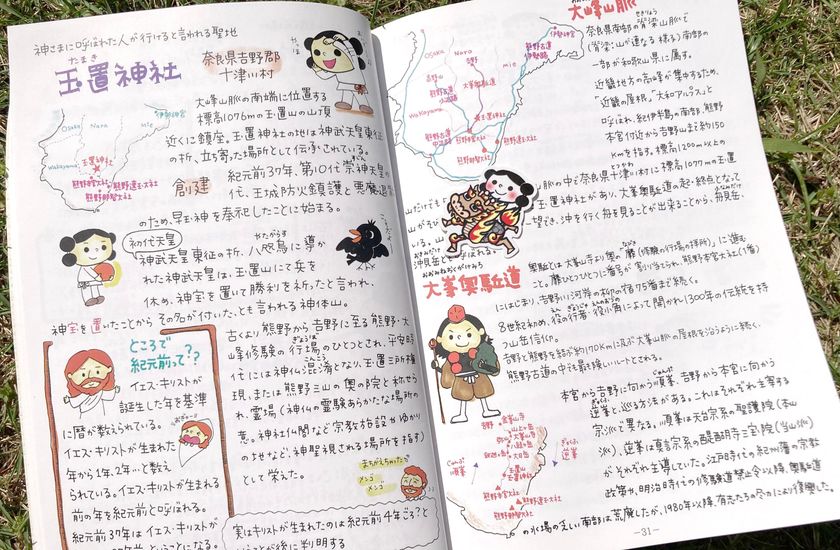 神さまに呼ばれた人が行けると言われる聖地
たまき
玉置神社
奈良県吉野郡
十津川村
大峰山脈の南端に位置する
標高1076mの玉置山の山頂
近くに鎮座。玉置神社の地は神武天皇東征
の折、立ち寄った場所として伝承されている。
Osaka Nara Mie
伊勢神宮
Wakayama
玉置神社
熊野本宮大社
熊野速玉大社
熊野那智大社
創建
紀元前37年、第10代崇神天皇の
代、王城防火鎮護と悪魔退
のため、早玉神を奉祀したことに始まる。
初代天皇
やたがらす
神武天皇東征の折、八咫烏に導か
れた神武天皇は、玉置山にて兵を
休め、神宝を置いて勝利を祈ったと言われ、
神宝を置いたことからその名が付いた、とも言われる神体山。
ところで
紀元前って??
イエス・キリストが
誕生した年を基準
に暦が数えられている。
イエス・キリストが生まれた
年から1年、2年…と数え
られている。イエス・キリストが生まれる
前の年を紀元前と呼ばれる。
紀元前37年はイエス・キリストが
古くより熊野から吉野に至る熊野・大
峰修験の行場のひとつとされ、平安時
代には神仏混淆となり、玉置三所権
現、または熊野三山の奥の院と称せら
れ、霊場(神仏の霊験あらかたな場所の
意。神社仏閣など宗教施設やゆかり
の地など、神聖視される場所を指す)
として栄えた。
まちがえちゃったで
メンゴ
メンゴ
実はキリストが生まれたのは紀元前4年ごろ?と
いうことが後に判明する
大峰山脈
奈良県南部の脊梁山脈で
(脊梁:山が連なる様子)南部の
一部が和歌山県に属す。
近畿地方の高峰が集中するため、
「近畿の屋根」「大和アルプス」と
呼ばれ、紀伊半島の南部、熊野
本宮付近から吉野山まで約150
kmを指す。標高1200m以上の
OSAKA Nara Mie
Wakayama
脈の中で奈良県十津川村に標高1077mの玉置
玉置神社があり、大峯奥駈道の起・終点となって
望でき、沖を行く舟を見ることが出来ることから、舟見岳、
沖見岳とも呼ばれる。
おおみねおくがけみち
大峯奥駈道
奥駈とは大峯山寺より奥の靡(修験の行場や拝所)に進む
こと。靡ひとつひとつに番号が割り当てられ、熊野本宮大社(1番)
にはじまり、吉野川河岸の柳の宿75番まで続く。
8世紀初め、役の行者・役小角によって開かれ1300年の伝統を持
つ山岳信仰。
吉野と熊野を結ぶ約170kmに及ぶ大峰山脈の屋根を沿うように続く、
熊野古道の中でも最も険しいルートとされる。
本宮から吉野に向かう順峯、吉野から本宮に向かう
逆峯と巡る方法がある。これはそれぞれ主導する
宗派で異なる。順峯は天台宗系の聖護院(本山
派)、逆峯は真言宗系の醍醐寺三宝院(当山派)
がそれぞれ主導していた。江戸時代の紀州藩の宗教
政策や、明治時代の修験道禁止令以降、奥駈道
の水場の乏しい南部は荒廃したが、1980年以降、有志たちの尽力により復興した。
じゅんぶ
順峯
ぎゃくふ
逆峯
-31-